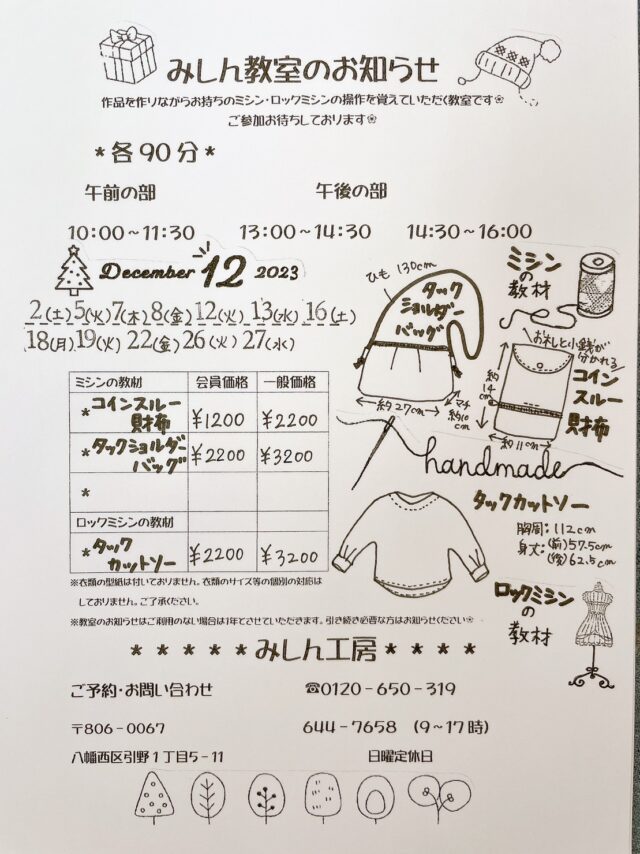 みしん教室のお知らせ
作品を作りながらお持ちのミシン・ロックミシンの操作を覚えていただく教室です❀
ご参加お待ちしております❀
＊各90分＊
午前の部　午後の部
10:00～11:30　13:00～14:30　14:30～16:00
December 12 2023
2(土)5(火)7(木)8(金)12(火)13(水)16(土)
18(月)19(火)22(金)26(火)27(水)
ひも 130cm
タック
ショルダー
バッグ
約27cm
マチ
約10cm
ミシン
の
教材
お札と小銭が
分かれる
コイン
スルー
財布
約14cm
約11cm
ミシンの教材　会員価格　一般価格
*コインスルー
財布　¥1200　¥2200
*タックショルダー
バッグ　¥2200　¥3200
*
ロックミシンの教材
*タック
カットソー　¥2200　¥3200
handmade
タックカットソー
胸周:112cm
身丈:(前)57.5cm
(後)62.5cm
ロックミシン
の
教材
※衣類の型紙は付いておりません。衣類のサイズ等の個別の対応は
しておりません。ご了承ください。
※教室のお知らせはご利用のない場合は1年とさせていただきます。引き続き必要な方はお知らせください❀
＊＊＊＊＊みしん工房＊＊＊＊
ご予約・お問い合わせ　☎0120-650-319
〒806-0067　644-7658 (9～17時)
八幡西区引野1丁目5-11　日曜定休日